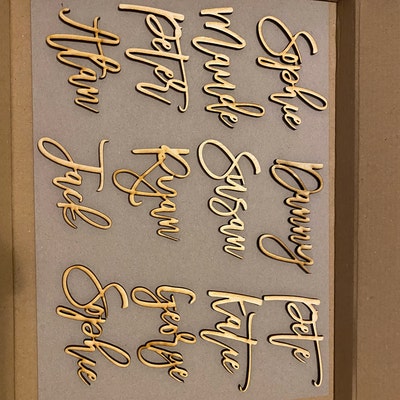 Sophie Danny Pete
Maude Susan Katie
Peter Ryan George
Jack Sophie